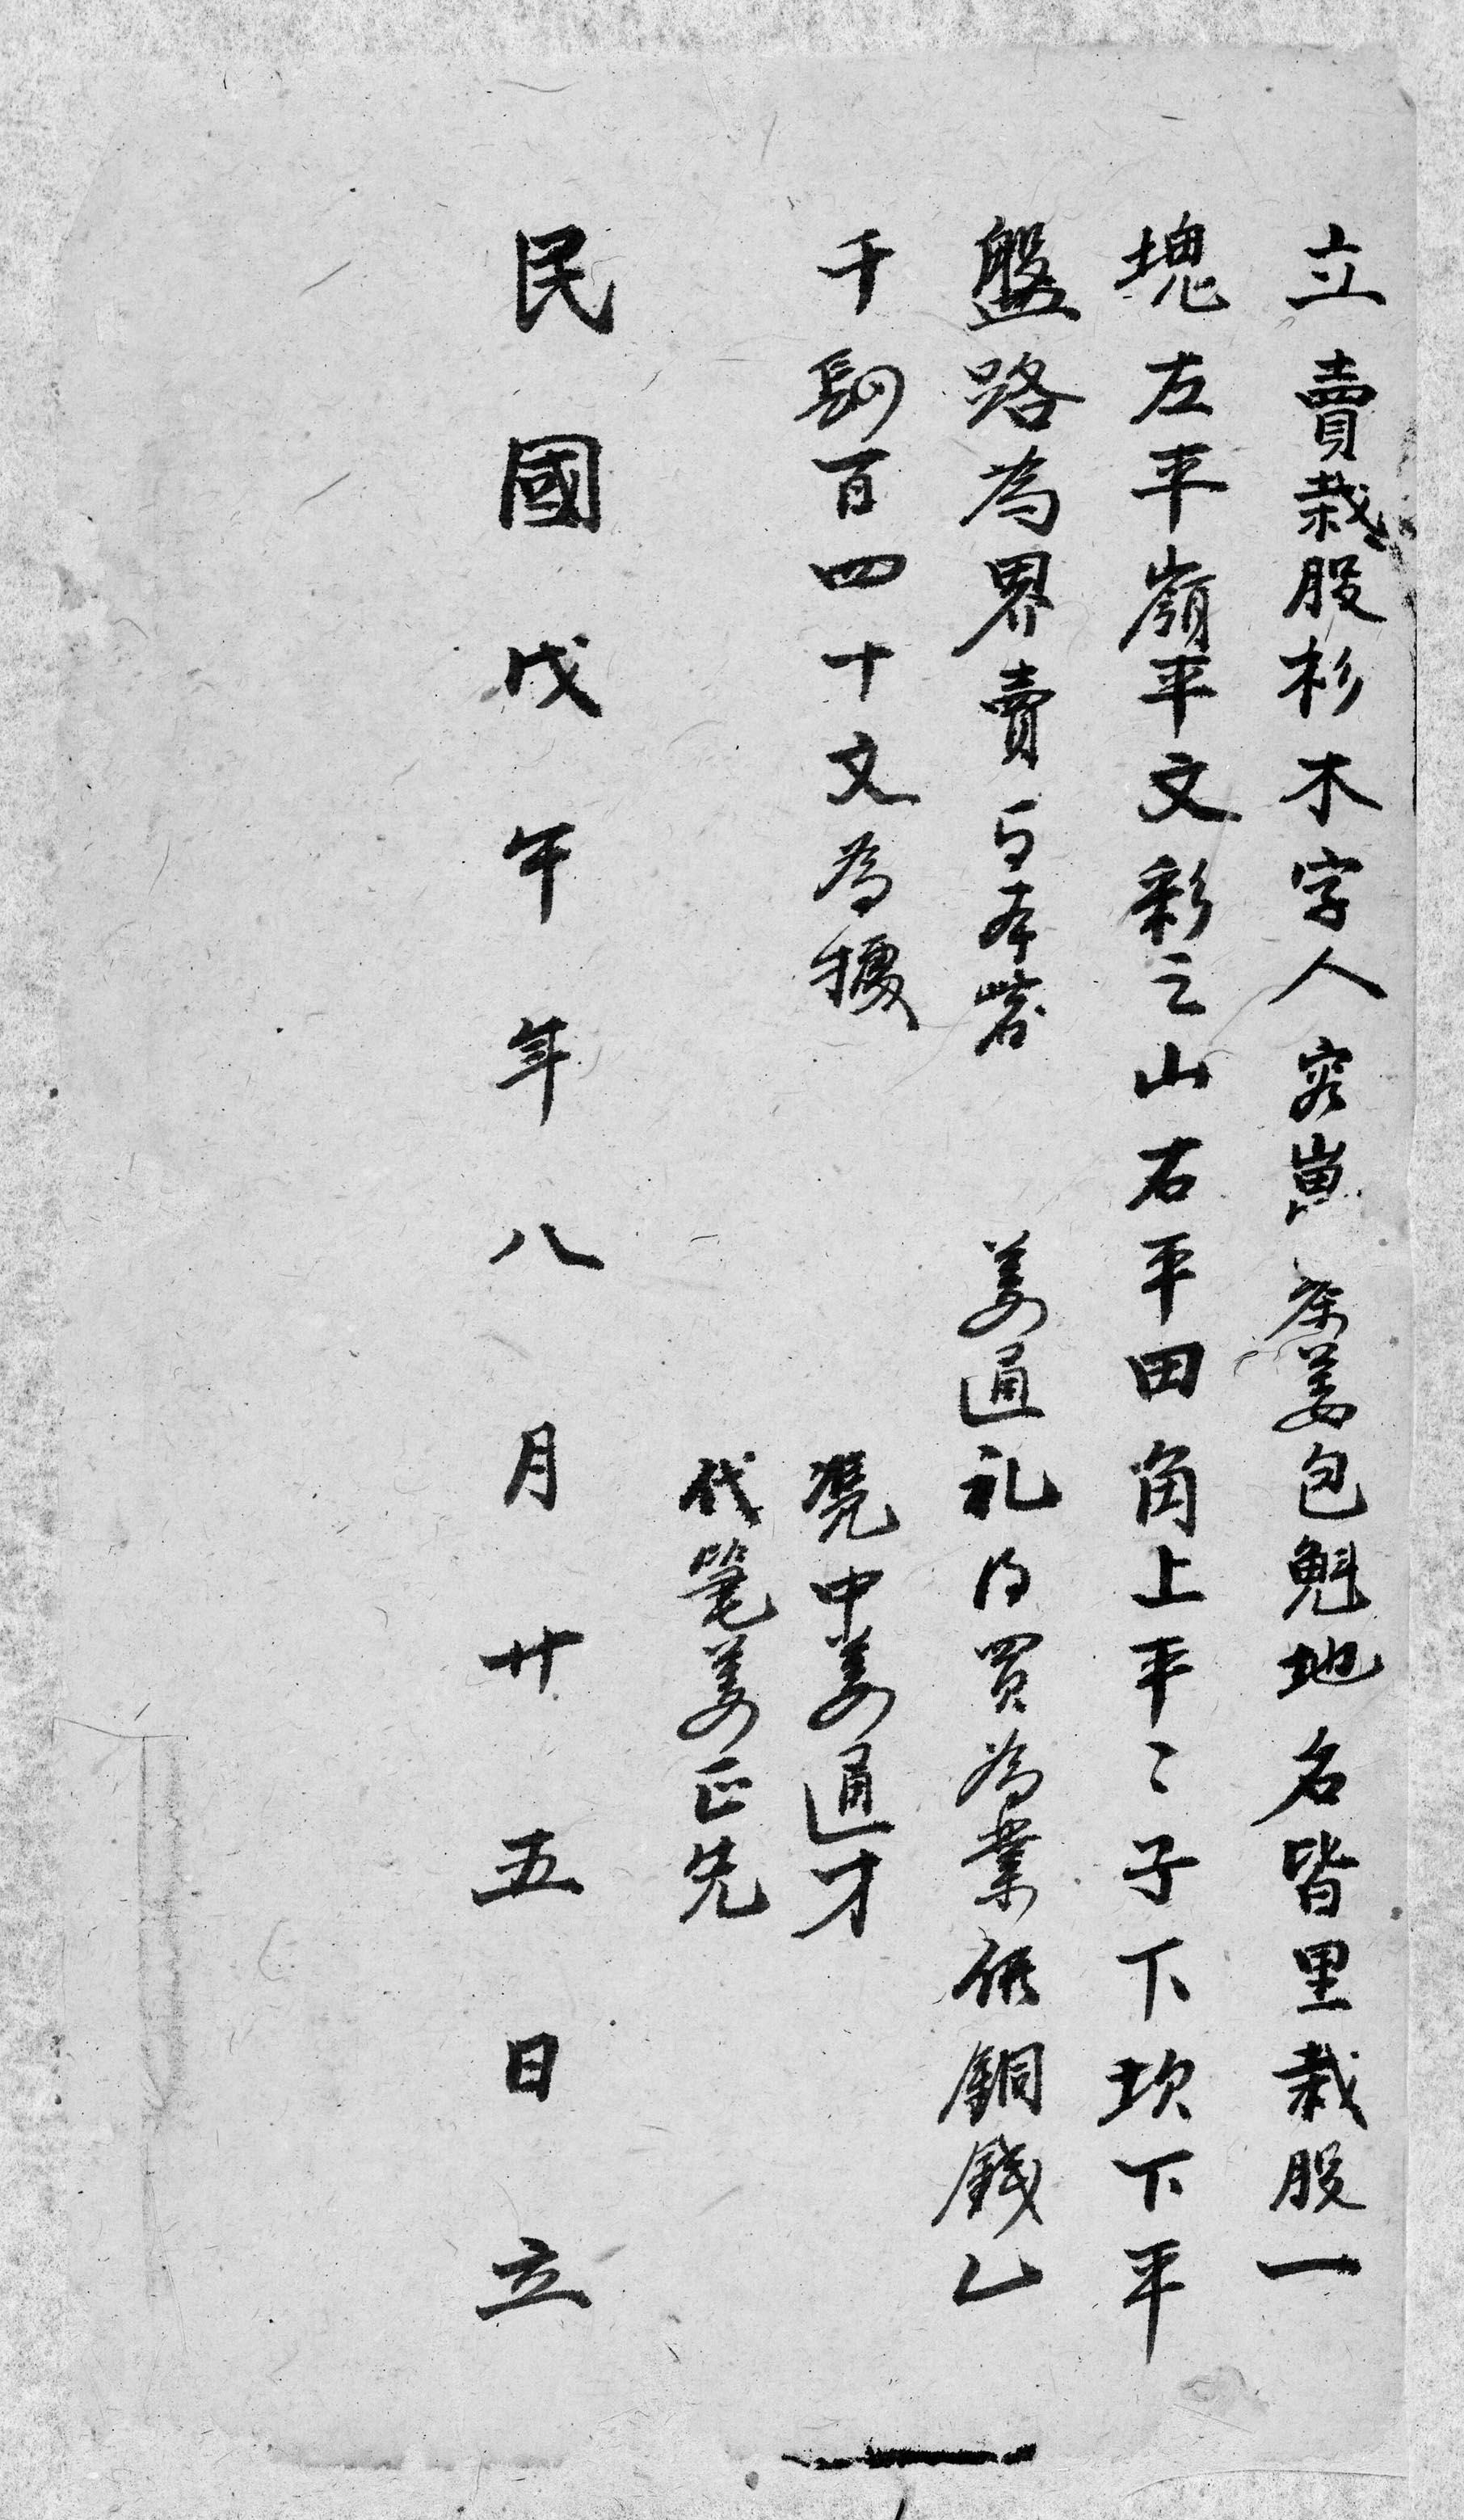 立賣栽股杉木字人容嵩寨姜包魁地名皆里栽股一
塊左平嶺平文彩之山右平田角上平〻子下坎下平
盤路為界賣与本寨 姜通礼的買為業價銅錢乙
千百四十文為據
憑中姜通才
代筆姜正先
民國戊午年八月廿五日立